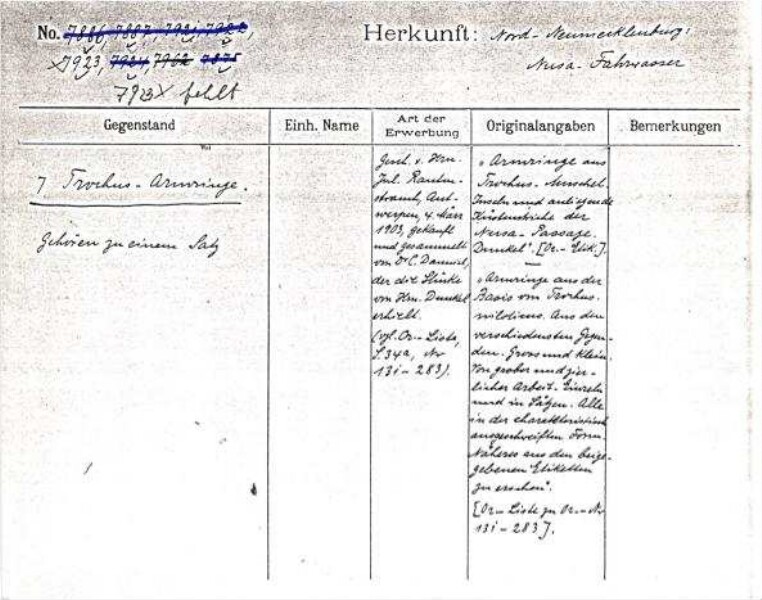 No. 7886, 7887, 7921, 7922,
7923, 7924, 7962 7875
7923 x fehlt
Herkunft: Nord-Neumecklenburg:
Nusa-Fahrwasser
Gegenstand
Einh. Name
Art der
Erwerbung
Originalangaben
Bemerkungen
7 Trochus-Armringe.
Gehören zu einem Satz
Gesch. v. Hrn.
Jul. Rauten-
strauch, Ant-
werpen, 4. März
1903, gekauft
und gesammelt
von Dr C.
der die Stücke
von Hrn. Dunkel
erhielt.
(vgl. Or.-Liste,
S. 34a, No
131-283).
"Armringe aus
Trochus-Muschel.
Inseln und anliegende
Küstenstriche der
Nusa-Passage.
Dunkel". [Or.-Etik.].
"Armringe aus der
Basis von Trochus
niloticus. Aus den
verschiedensten Gegen-
den. Gross und klein.
Von grober und zier-
licher Arbeit. Einzeln
und in Sätzen. Alle
in der charakteristisch
ausgeschweiften Form.
Näheres aus den beige-
gebenen Etiketten
zu ersehen".
[Or.-Liste zu Or.-No
131-283].